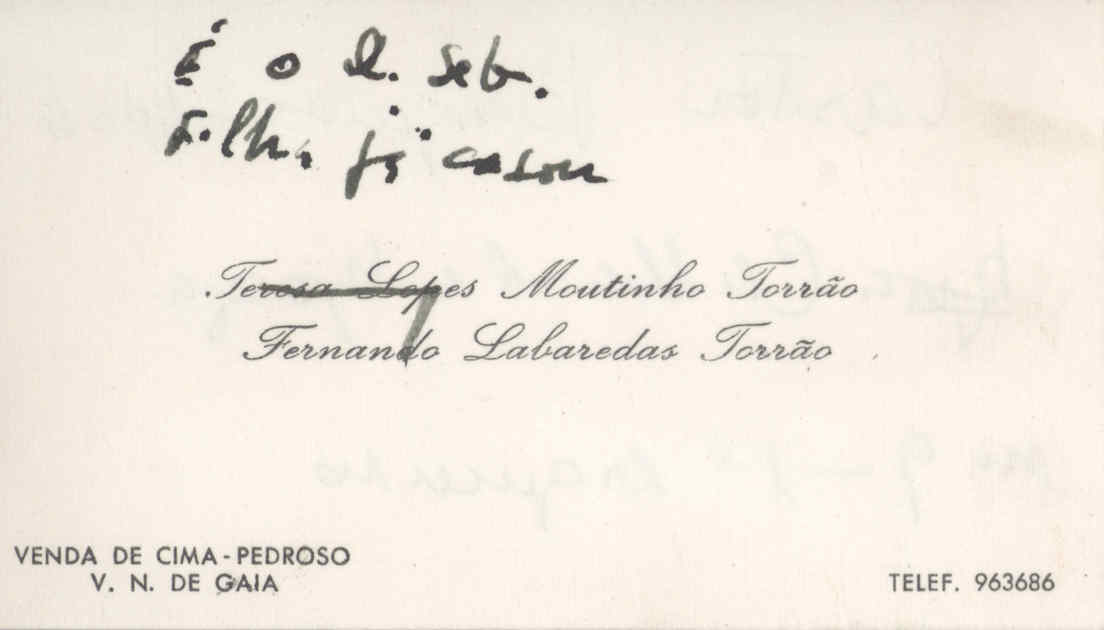 É o D. Seb.
Filha já casou
Teresa Lopes Moutinho Torrão
Fernando Labaredas Torrão
VENDA DE CIMA - PEDROSO
V. N. DE GAIA
TELEF. 963686